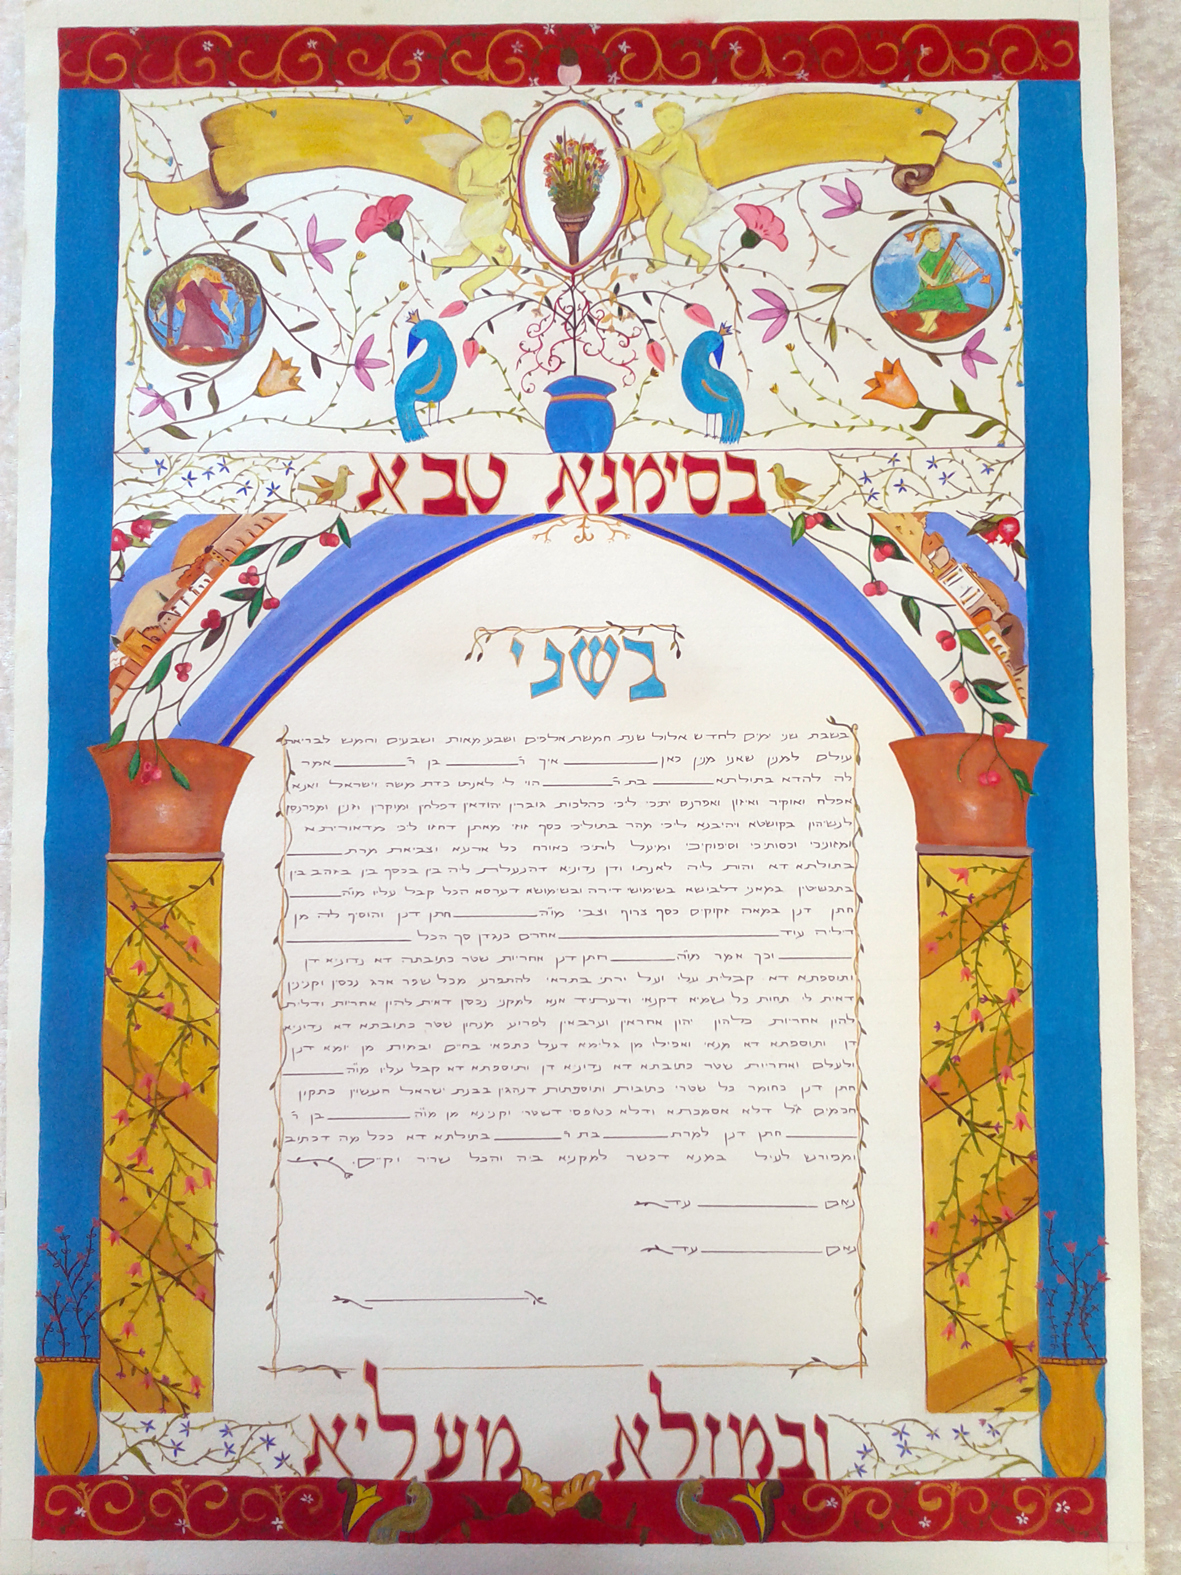 בסימנא טבא
בשני
בשבת שני ימים לחדש אלול שנת חמשת אלפים ושבע מאות ושבעים וחמש לבריאת
עולם למנין שאנו מנין כאן ______ איך ר ______ בן ר ______ אמר
לה להדא בתולתא ______ בת ר ______ הוי לי לאנתו כדת משה וישראל ואנא
אפלח ואוקיר ואיזון ואפרנס יתכי ליכי כהלכות גוברין יהודאין דפלחין ומוקרין וזנין ומפרנסין
לנשיהון בקושטא ויהיבנא ליכי מהר בתוליכי כסף זוזי מאתן דחזו ליכי מדאוריתא
ומזוניכי וכסותיכי וסיפוקיכי ומיעל לותיכי כאורח כל ארעא וצביאת מרת ______
בתולתא דא והות ליה לאנתו ודן נדוניא דהנעלת ליה בין בכסף בין בזהב בין
בתכשיטין במאני דלבושא בשימושי דירה ובשימושא דערסא הכל קבל עליו מו"ה ______
חתן דנן במאה זקוקים כסף צרוף וצבי מו"ה ______ חתן דנן והוסיף לה מן
דיליה עוד ______ אחרים כנגדן סך הכל ______
______ וכך אמר מו"ה ______ חתן דנן אחריות שטר כתובתה דא נדוניא דן
ותוספתא דא קבלית עלי ועל ירתי בתראי להתפרע מכל שפר ארג נכסין וקנינין
דאית לי תחות כל שמיא דקנאי ודעתיד אנא למקני נכסין דאית להון אחריות ודלית
להון אחריות כלהון יהון אחראין וערבאין לפרוע מנהון שטר כתובתא דא נדוניא
דן ותוספתא דא מנאי ואפילו מן גלימא דעל כתפאי בחיים ובמות מן יומא דנן
ולעלם ואחריות שטר כתובתא דא נדוניא דן ותוספתא דא קבל עליו מו"ה ______
חתן דנן כחומר כל שטרי כתובות ותוספתות דנהגין בבנת ישראל העשוין כתקון
חכמים ז"ל דלא אסמכתא ודלא כטופסי דשטרי וקנינא מן מו"ה ______ בן ר
______ חתן דנן למרת ______ בת ר ______ בתולתא דא ככל מה דכתיב
ומפורש לעיל במנא דכשר למקניא ביה והכל שריר וקיים.
נאם ______ עד
נאם ______ עד
ובמזלא מעליא